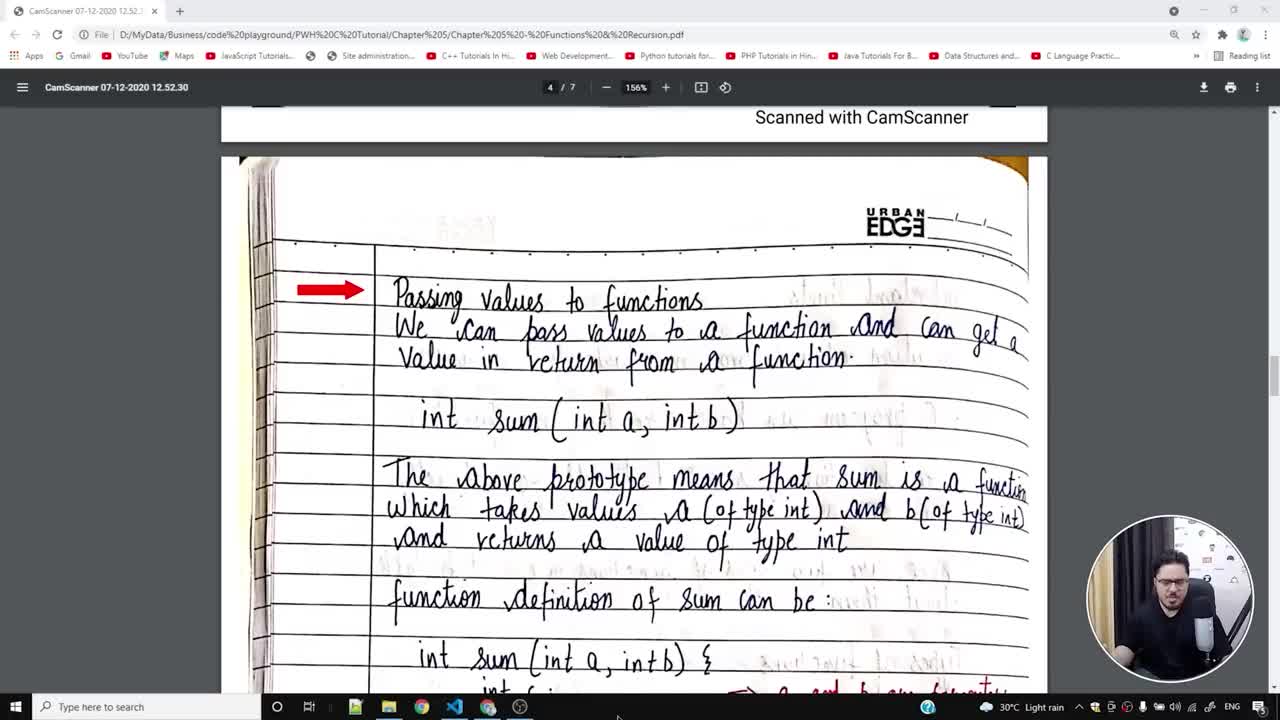 CamScanner 07-12-2020 12.52.3
File
D:/MyData/Business/code%20playground/PWH%20C%20Tutorial/Chapter%205/Chapter%205%20-%20Functions%20&%20Recursion.pdf
Apps Gmail YouTube Maps JavaScript Tutorials... Site administration... C++ Tutorials In Hi... Web Development... Python tutorials for... PHP Tutorials in Hin... Java Tutorials For B... Data Structures and... C Language Practic... » Reading list
CamScanner 07-12-2020 12.52.30 4 / 7 156%
Scanned with CamScanner
URBAN
EDGE
Passing values to functions
We can pass values to a function and can get a
value in return from a function.
int sum (int a, int b)
The above prototype means that sum is a function
which takes values a (of type int) and b (of type int)
and returns a value of type int
function definition of sum can be:
int sum (int a, int b) {
Type here to search
30°C Light rain ENG